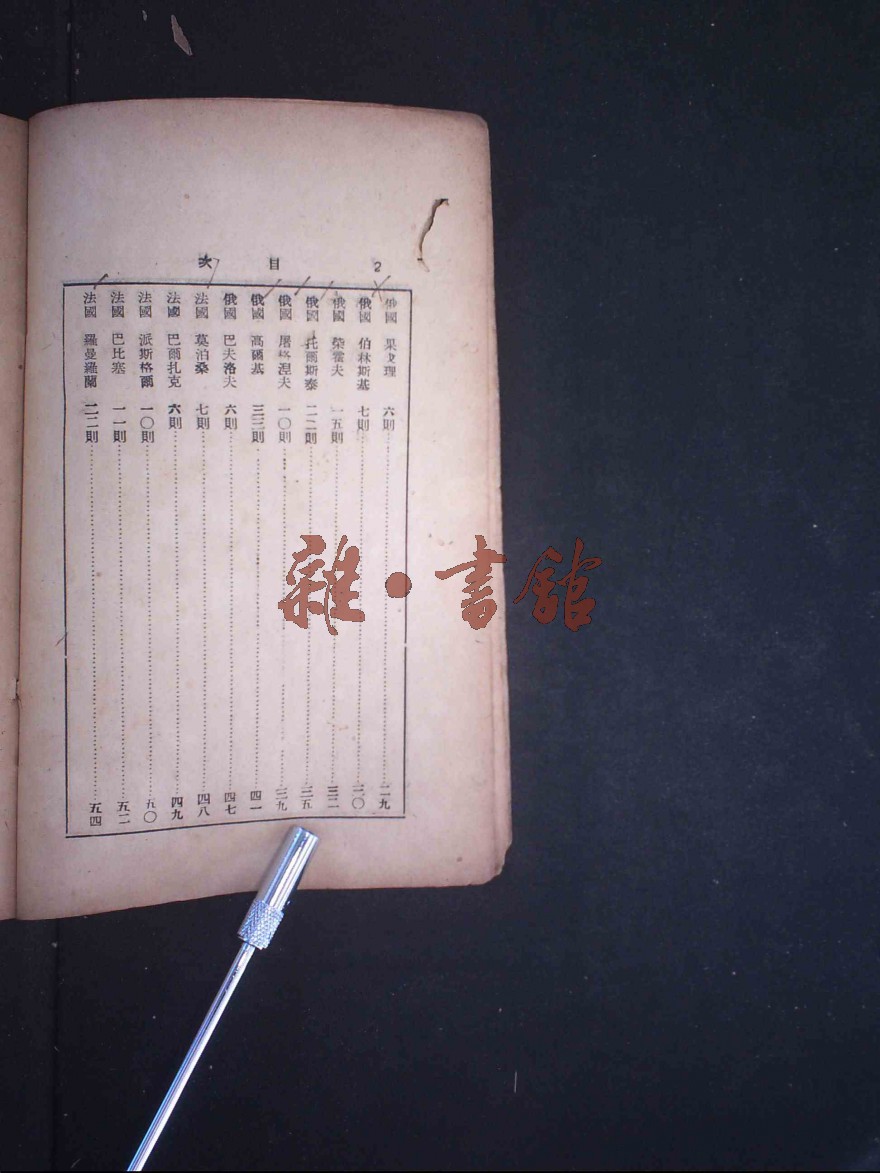 目次 2
俄國 果戈理 六則 二九
俄國 伯林斯基 七則 三〇
俄國 柴霍夫 一五則 三二
俄國 托爾斯泰 二二則 三五
俄國 屠格涅夫 一〇則 三九
俄國 高爾基 三三則 四一
俄國 巴夫洛夫 六則 四七
法國 莫泊桑 七則 四八
法國 巴爾扎克 六則 四九
法國 派斯格爾 一〇則 五〇
法國 巴比塞 一一則 五二
法國 羅曼羅蘭 二二則 五四
雜·書館